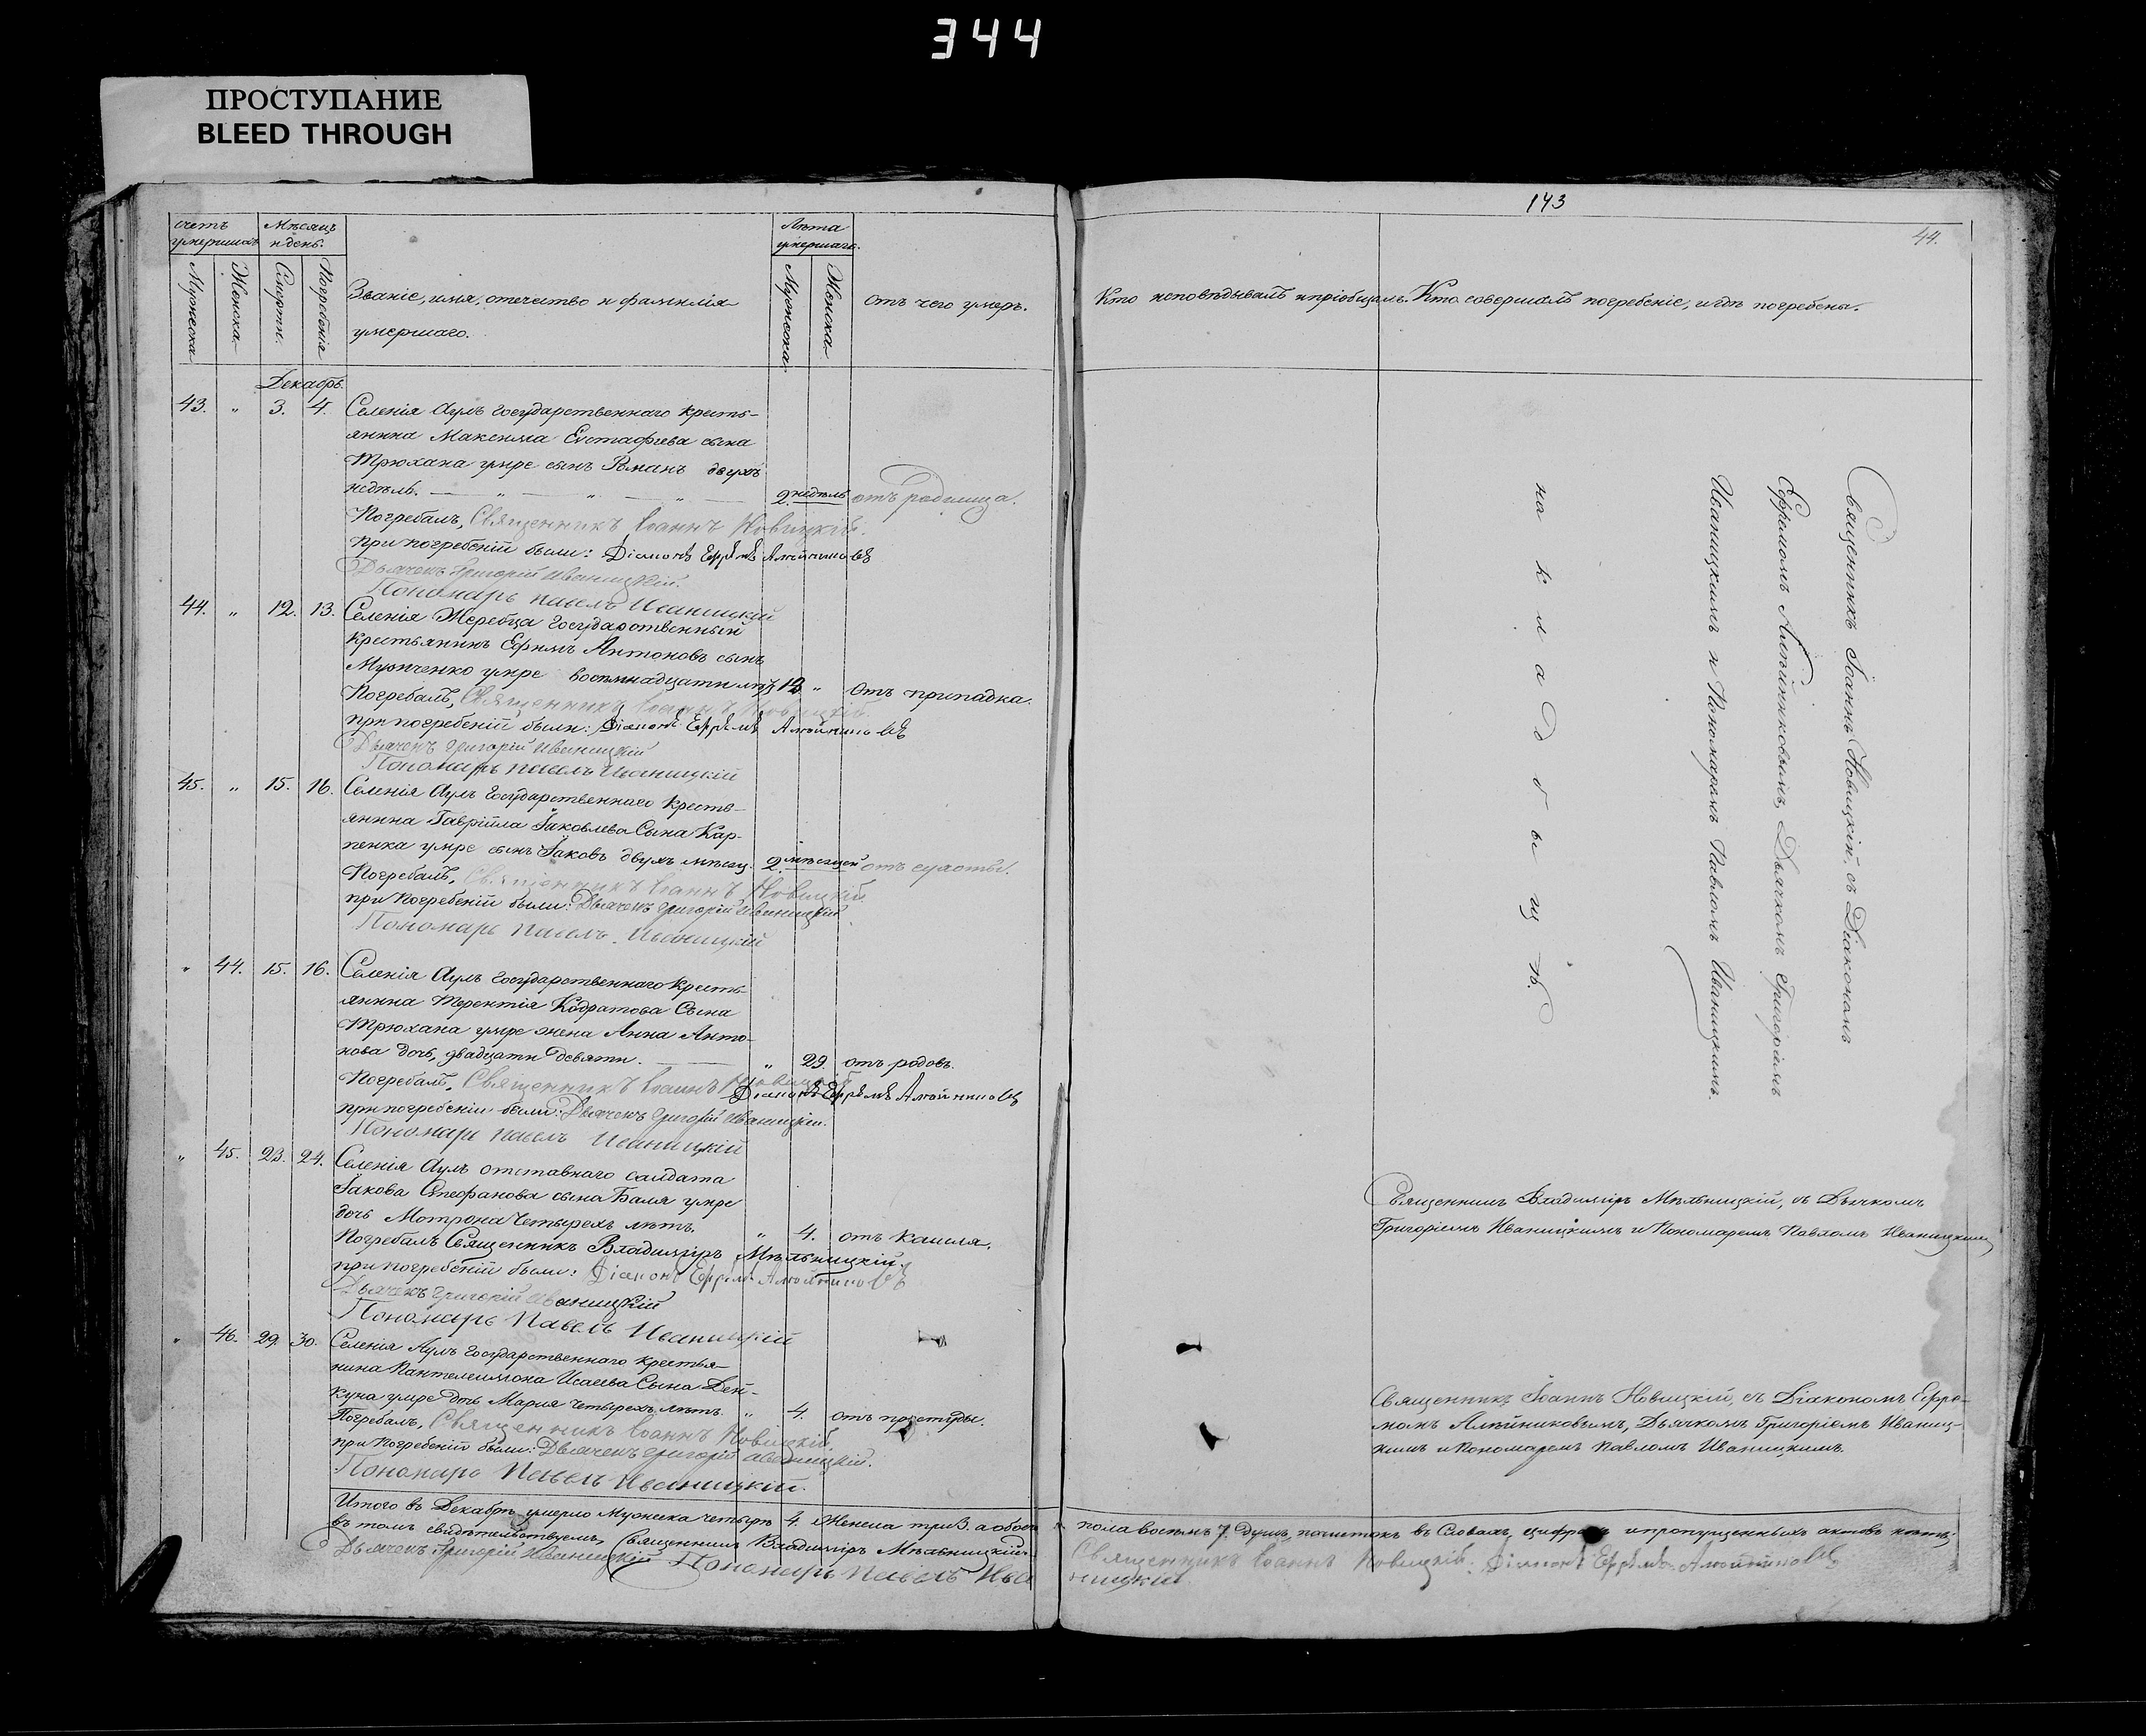 344
ПРОСТУПАНИЕ
BLEED THROUGH
143
44.
счетъ умершихъ
Мѣсяцъ и день.
Лѣта умершаго.
Мужеска
Женска
Смерти.
Погребенія
Званіе, имя, отечество и фамилія
умершаго.
Мужеска
Женска
отъ чего умеръ.
Кто исповѣдывалъ и пріобщалъ.
Кто совершалъ погребеніе, и гдѣ погребены.
Декабрь.
43. „ 3. 4. Селенія Аулъ государственнаго кресть-
янина Максима Евстафіева сына
Трюхана умре сынъ Романъ двухъ
недѣль. — „ — „ — „ — 2 недѣль отъ родимца.
Погребалъ, Священникъ Іоаннъ Новицкій.
при погребеніи были: Діаконъ Ефремъ Алѣйниковъ
Дьячекъ Григорій Иваницкій.
Пономарь Павелъ Иваницкій
44. „ 12. 13. Селенія Жеребца государственный
крестьянинъ Ефимъ Антоновъ сынъ
умре восемнадцати лѣтъ 18 „ отъ припадка.
Погребалъ, Священникъ Іоаннъ Новицкій
при погребеніи были: Діаконъ Ефремъ Алѣйниковъ
Дьячекъ Григорій Иваницкій
Пономарь Павелъ Иваницкій
45. „ 15. 16. Селенія Аулъ государственнаго кресть-
янина Гавріила Іаковлева Сына Кар-
пенка умре сынъ Іаковъ двухъ мѣсяц. 2 мѣсяцей отъ сухоты.
Погребалъ, Священникъ Іоаннъ Новицкій
при погребеніи были: Дьячекъ Григорій Иваницкій
Пономарь Павелъ Иваницкій
„ 44. 15. 16. Селенія Аулъ государственнаго кресть-
янина Терентія Кодратова Сына
Трюхана умре жена Анна Анто-
нова дочь, двадцати девяти. — „ 29. отъ родовъ.
Погребалъ, Священникъ Іоаннъ Новицкій
Діаконъ Ефремъ Алѣйниковъ
при погребеніи были: Дьячекъ Григорій Иваницкій.
Пономарь Павелъ Иваницкій
„ 45. 23. 24. Селенія Аулъ отставнаго салдата
Іакова Стефанова сына Баля умре
дочь Мотрона четырехъ лѣтъ. „ 4. отъ кашля.
Погребалъ Священникъ Владимиръ Мѣльницкій.
при погребеніи были: Діаконъ Ефремъ Алѣйниковъ
Дьячекъ Григорій Иваницкій
Пономарь Павелъ Иваницкій
„ 46. 29. 30. Селенія Аулъ государственнаго крестья-
нина Пантелеимона Исаева Сына Дей-
куна умре дочь Мария четырехъ лѣтъ. „ 4. отъ простуды.
Погребалъ, Священникъ Іоаннъ Новицкій.
при погребеніи были: Дьячекъ Григорій Иваницкій.
Пономарь Павелъ Иваницкій.
Священникъ Іоаннъ Новицкій, съ Діакономъ
Ефримомъ Алѣйниковымъ, Дьячкомъ Григоріемъ
Иваницкимъ и Пономаремъ Павломъ Иваницкимъ.
на кладбищѣ.
Священникъ Владимиръ Мѣльницкій, съ Дьячкомъ
Григоріемъ Иваницкимъ и Пономаремъ Павломъ Иваницкимъ
Священникъ Іоаннъ Новицкій, съ Діакономъ Ефре-
момъ Алѣйниковымъ, Дьячкомъ Григоріемъ Иваниц-
кимъ и Пономаремъ Павломъ Иваницкимъ.
Итого въ Декабрѣ умерло Мужеска четыре 4. Женска три 3. а обоего пола восемъ 7. душъ, почистокъ въ Словахъ, цифрахъ и пропущенныхъ актовъ нѣтъ;
въ томъ свидѣтельствуемъ, Священникъ Владимиръ Мѣльницкій. Священникъ Іоаннъ Новицкій. Діаконъ Ефремъ Алѣйниковъ
Дьячекъ Григорій Иваницкій Пономарь Павелъ Иваницкій